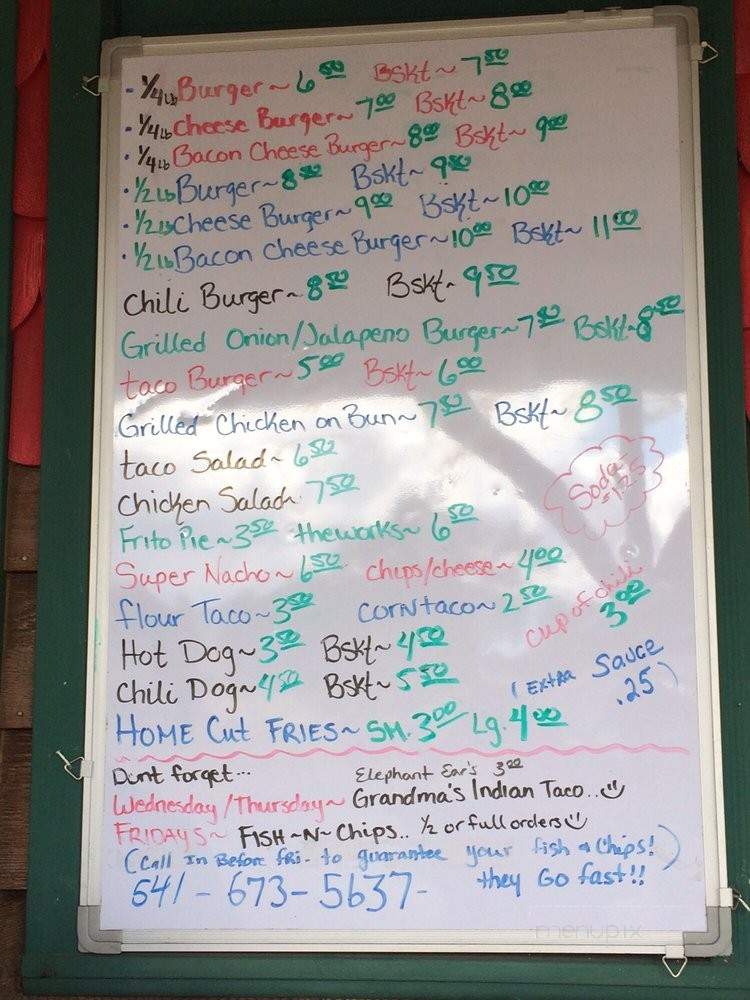 - 1/4 Lb Burger ~ 6 50 Bskt ~ 7 50
- 1/4 Lb Cheese Burger ~ 7 00 Bskt ~ 8 00
- 1/4 Lb Bacon Cheese Burger ~ 8 00 Bskt ~ 9 00
· 1/2 Lb Burger ~ 8 50 Bskt ~ 9 50
· 1/2 Lb Cheese Burger ~ 9 00 Bskt ~ 10 00
· 1/2 Lb Bacon Cheese Burger ~ 10 00 Bskt ~ 11 00
Chili Burger ~ 8 50 Bskt ~ 9 50
Grilled Onion/Jalapeno Burger ~ 7 50 Bskt ~ 8 50
taco Burger ~ 5 00 Bskt ~ 6 00
Grilled Chicken on Bun ~ 7 50 Bskt ~ 8 50
taco Salad ~ 6 50
Chicken Salad ~ 7 50
Soda ~ 1.25
Frito Pie ~ 3 50 theworks ~ 6 50
Super Nacho ~ 6 50 chips/cheese ~ 4 00
flour Taco ~ 3 50 Corn taco ~ 2 50
cup of chili 3 00
Hot Dog ~ 3 50 Bskt ~ 4 50
Chili Dog ~ 4 50 Bskt ~ 5 50
(Extra Sauce .25)
HOME Cut FRIES ~ SM. 3 00 Lg. 4 00
Dont forget... Elephant Ear's 3 00
Wednesday/Thursday ~ Grandma's Indian Taco..
FRIDAYS ~ FISH ~N~ Chips.. 1/2 or full orders
(Call In Before fri- to guarantee your fish & Chips!)
641-673-5637- they Go fast!!
menupix